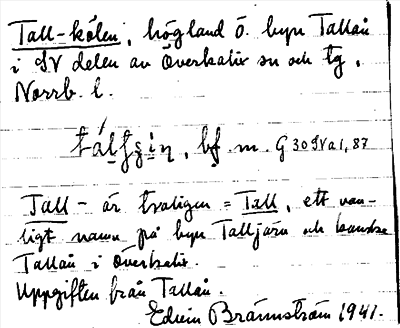 Tall-kölen, högland ö. byn Tallån
i SV delen av Överkalix sn och tg,
Norrb. l.
bf. m. G 30 SV a 1, 87
Tall- är troligen = Tall, ett van-
ligt namn på byn Talljärv och kanske
Tallån i Överkalix.
Uppgiften från Tallån.
Edvin Brännström 1941.